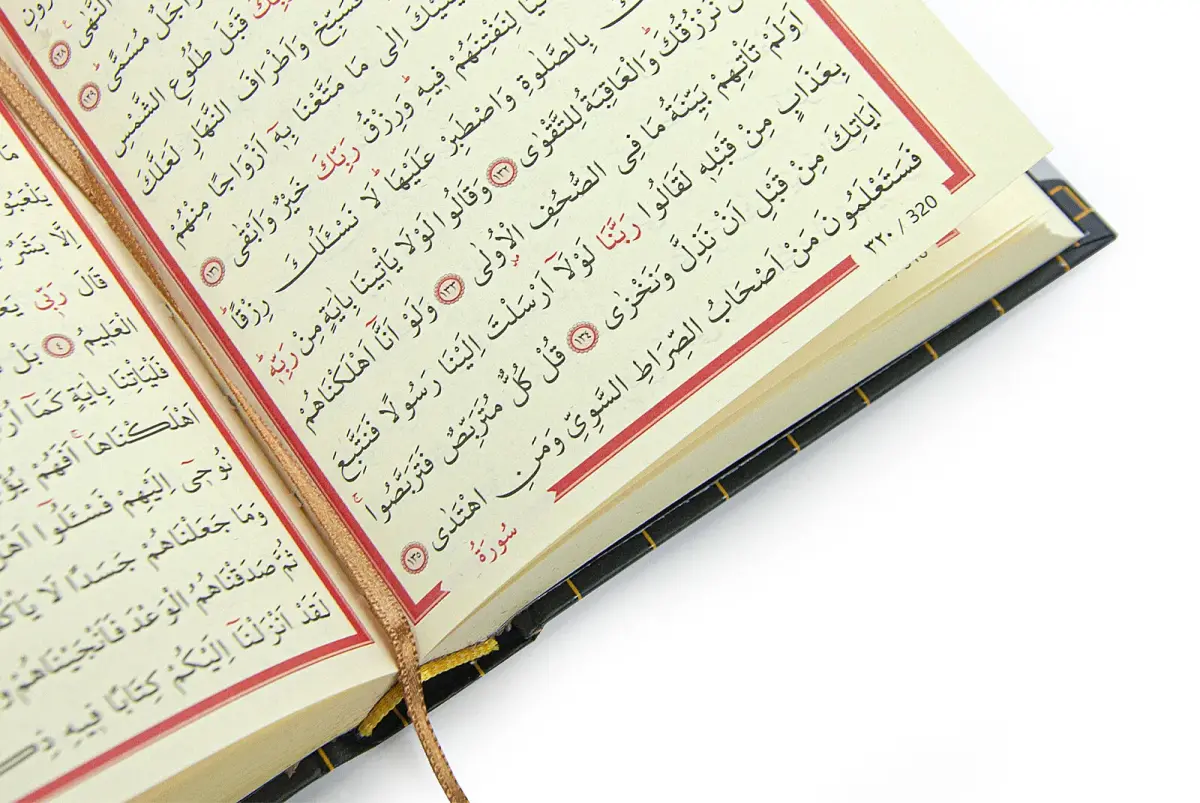 النُّهٰى ١٢٨
وَاَجَلٌ مُسَمًّى ١٢٩
رَبِّكَ قَبْلَ طُلُوعِ الشَّمْسِ
فَسَبِّحْ وَاَطْرَافَ النَّهَارِ لَعَلَّكَ
اِلٰى مَا مَتَّعْنَا بِهٖٓ اَزْوَاجًا مِنْهُمْ
لِنَفْتِنَهُمْ فٖيهِ وَرِزْقُ رَبِّكَ خَيْرٌ وَاَبْقٰى ١٣١
بِالصَّلٰوةِ وَاصْطَبِرْ عَلَيْهَا لَا نَسْـَٔلُكَ رِزْقًا
نَرْزُقُكَ وَالْعَاقِبَةُ لِلتَّقْوٰى ١٣٢ وَقَالُوا لَوْلَا يَأْتٖينَا بِاٰيَةٍ مِنْ رَبِّهٖ
اَوَلَمْ تَأْتِهِمْ بَيِّنَةُ مَا فِى الصُّحُفِ الْاُولٰى ١٣٣ وَلَوْ اَنَّٓا اَهْلَكْنَاهُمْ
بِعَذَابٍ مِنْ قَبْلِهٖ لَقَالُوا رَبَّنَا لَوْلَٓا اَرْسَلْتَ اِلَيْنَا رَسُولًا فَنَتَّبِعَ
اٰيَاتِكَ مِنْ قَبْلِ اَنْ نَذِلَّ وَنَخْزٰى ١٣٤ قُلْ كُلٌّ مُتَرَبِّصٌ فَتَرَبَّصُوا
فَسَتَعْلَمُونَ مَنْ اَصْحَابُ الصِّرَاطِ السَّوِىِّ وَمَنِ اهْتَدٰى ١٣٥
٣٢٠ / 320
سُورَةُ
مَا
اِلَّا بَشَرٌ
قَالَ رَبّٖى
الْعَلٖيمُ ٤ بَلْ
فَلْيَأْتِنَا بِاٰيَةٍ كَمَٓا
اَهْلَكْنَاهَا اَفَهُمْ
نُوحٖٓى اِلَيْهِمْ فَسْـَٔلُٓوا
وَمَا جَعَلْنَاهُمْ جَسَدًا لَا
ثُمَّ صَدَقْنَاهُمُ الْوَعْدَ فَاَنْجَيْنَاهُمْ
لَقَدْ اَنْزَلْنَٓا اِلَيْكُمْ كِتَابًا فٖيهِ